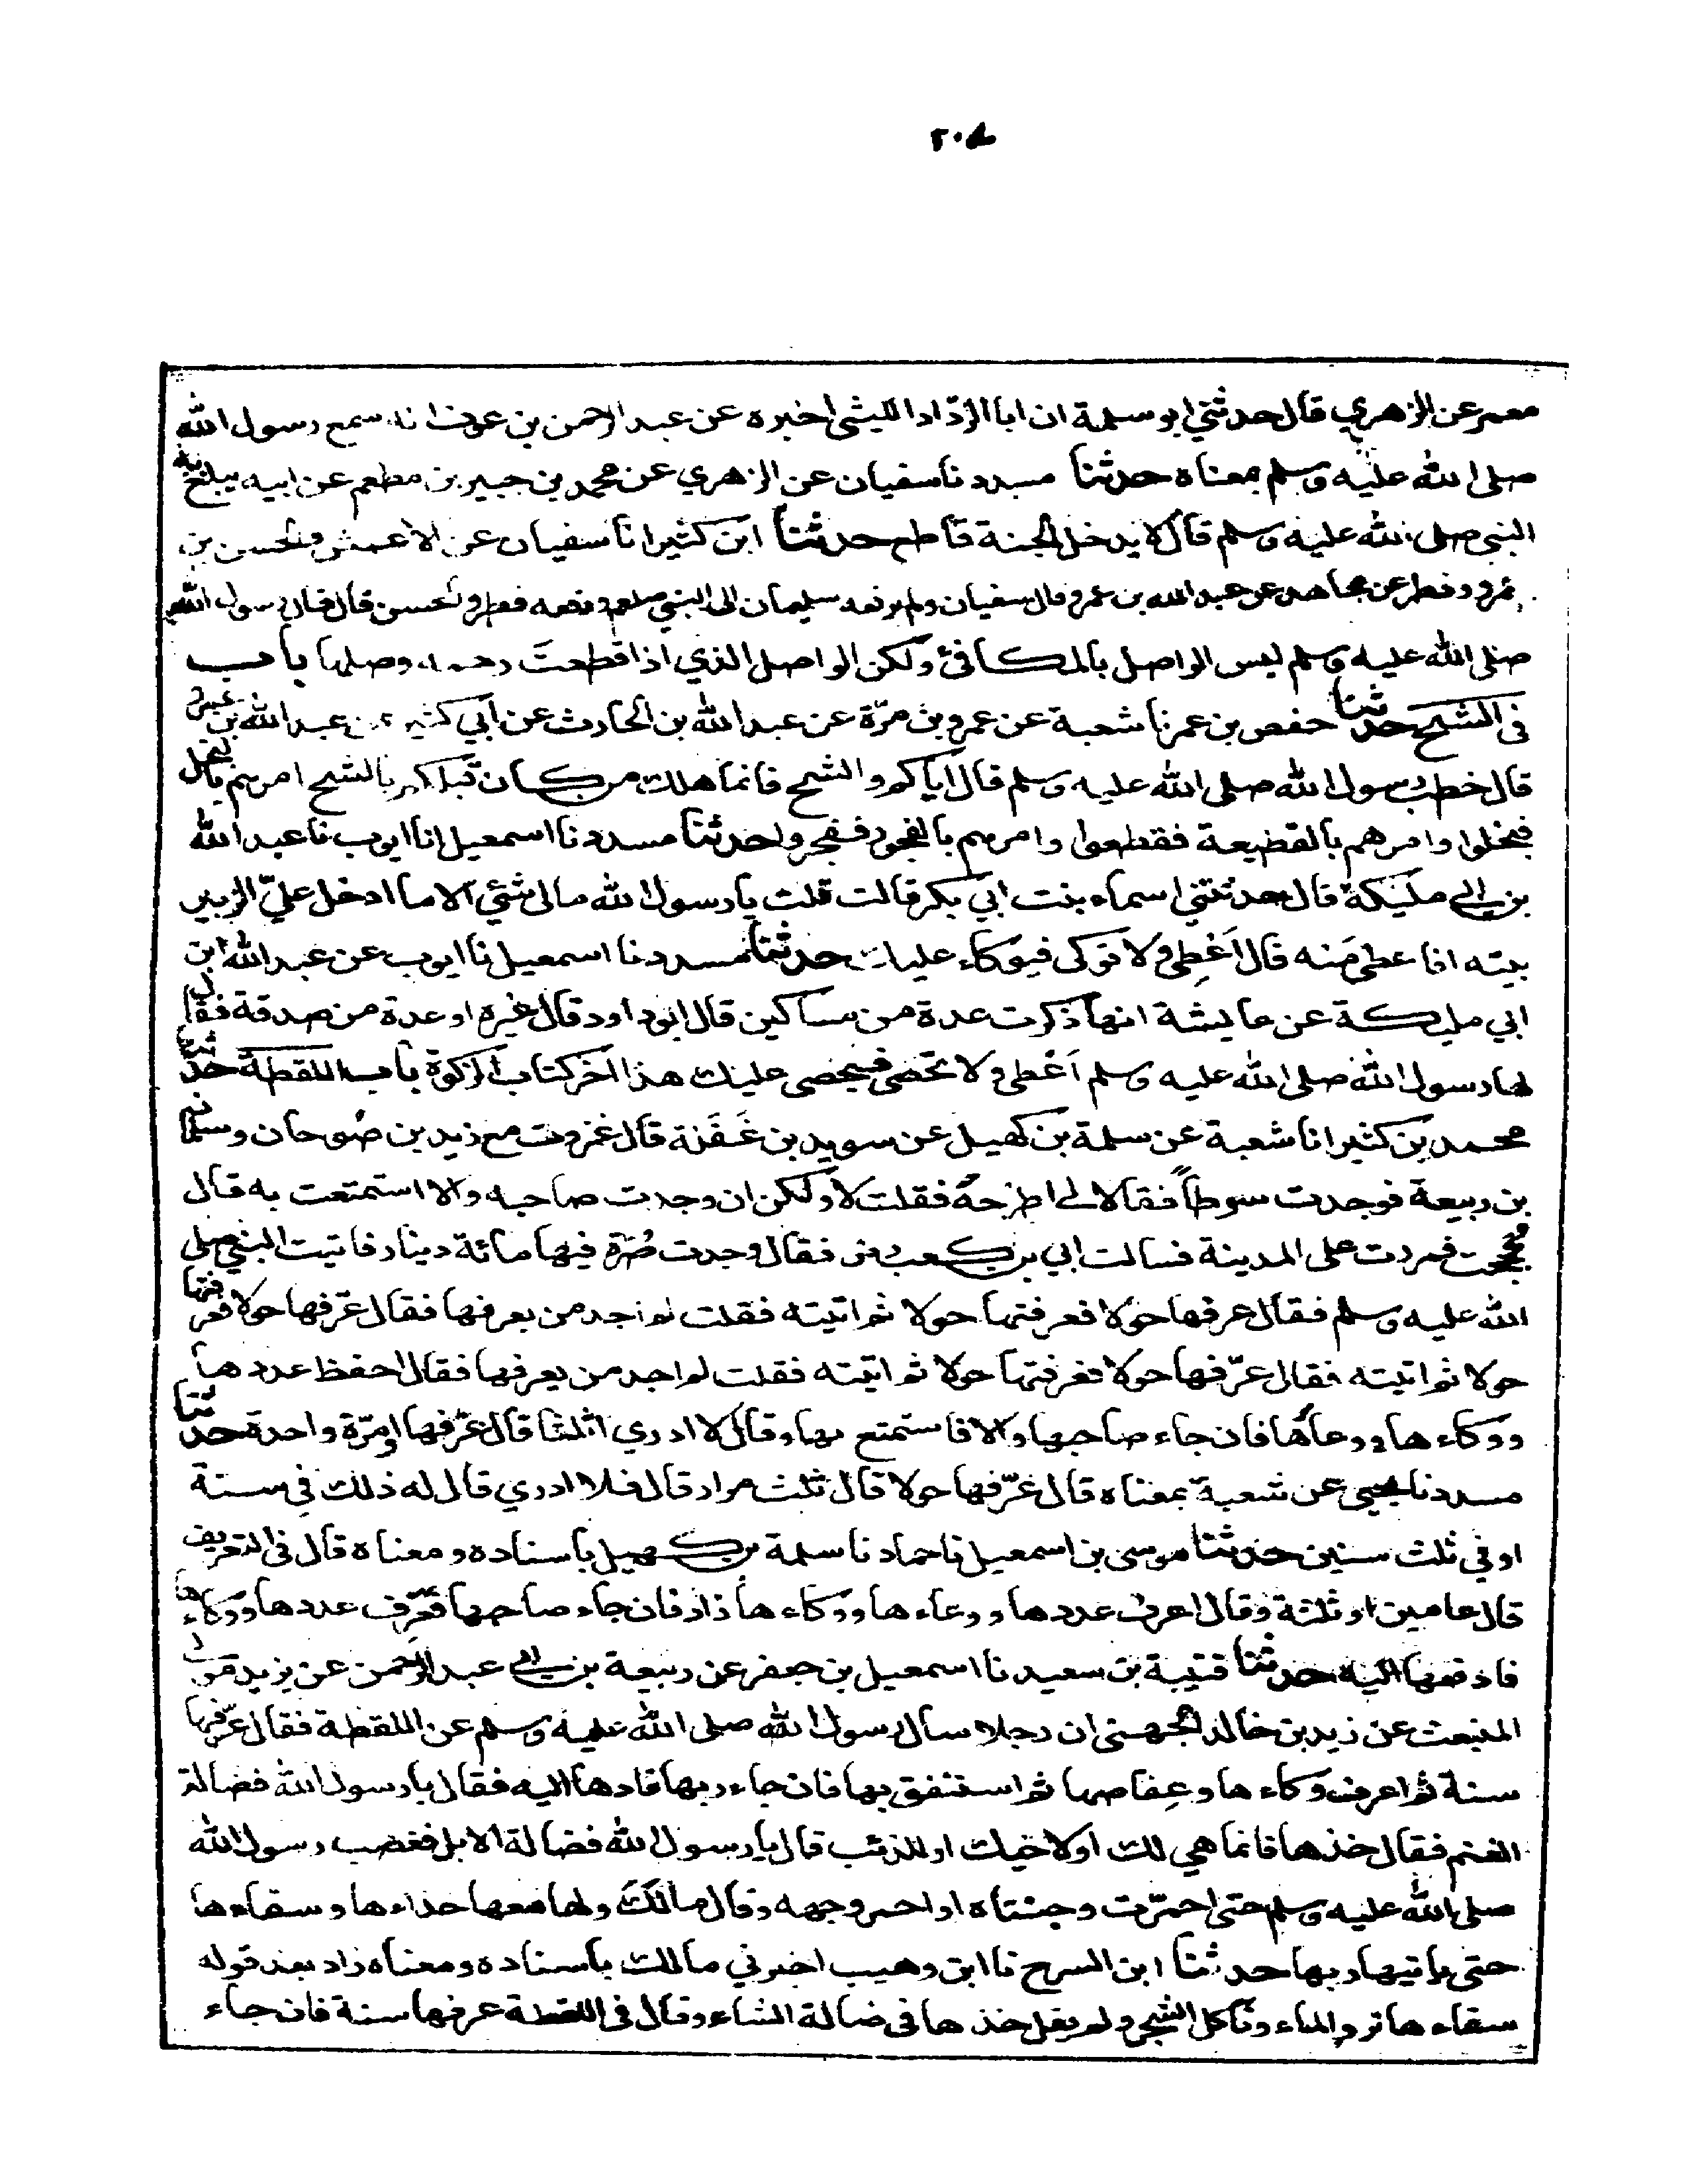 ٢٠٤
معمر عن الزهري قال حدثني ابو سلمة ان ابا الردّاد الليثي اخبره عن عبد الرحمن بن عوف انه سمع رسول الله
صلى الله عليه وسلم بمعناه حدثنا مسدد نا سفيان عن الزهري عن محمد بن جبير بن مطعم عن ابيه يبلغ به
النبي صلى الله عليه وسلم قال لا يدخل الجنة قاطع حدثنا ابن كثير انا سفيان عن الاعمش والحسن بن
عمرو وفطر عن مجاهد عن عبد الله بن عمرو قال سفيان ولم يرفعه سليمان الى النبي صلعم ورفعه فطر والحسن قال قال رسول الله
صلى الله عليه وسلم ليس الواصل بالمكافئ ولكن الواصل الذي اذا قطعت رحمه وصلها باب
في الشح حدثنا حفص بن عمر نا شعبة عن عمرو بن مرّة عن عبد الله بن الحارث عن ابي كثير عن عبد الله بن عمرو
قال خطب رسول الله صلى الله عليه وسلم قال اياكم والشح فانما هلك من كان قبلكم بالشح امرهم بالبخل
فبخلوا وامرهم بالقضيعة فقطعوا وامرهم بالفجور ففجروا حدثنا مسدد نا اسمعيل انا ايوب نا عبد الله
بن ابي مليكة قال حدثتني اسماء بنت ابي بكر قالت قلت يا رسول الله مالى شئ الا ما ادخل عليّ الزبير
بيته افاعطى منه قال اعطى ولا توكى فيوكاء عليك حدثنا مسدد نا اسمعيل نا ايوب عن عبد الله ابن
ابي مليكة عن عايشة انها ذكرت عدة من مساكين قال ابو داود قال غيره او عدة من صدقة فقال
لها رسول الله صلى الله عليه وسلم اعطى ولا تحصى فيحصى عليك هذا اخر كتاب الزكوة باب اللقطة حدثنا
محمد بن كثير انا شعبة عن سلمة بن كهيل عن سويد بن غفلة قال غزوت مع زيد بن صوحان وسلمان
بن ربيعة فوجدت سوطاً فقالا لي اطرحه فقلت لا ولكن ان وجدت صاحبه والا استمتعت به قال
فحججت فمررت على المدينة فسالت ابي بن كعب فقال وجدت صُرّة فيها مائة دينار فاتيت النبي صلى
الله عليه وسلم فقال عرفها حولا فعرفتها حولا ثم اتيته فقلت لم اجد من يعرفها فقال عرّفها حولا فعرفتها
حولا ثم اتيته فقال عرّفها حولا فعرفتها حولا ثم اتيته فقلت لم اجد من يعرفها فقال احفظ عددها
ووكاءها ووعاءها فان جاء صاحبها والا فاستمتع بها وقال لا ادري اثلثا قال عرّفها او مرّة واحدة حدثنا
مسدد نا يحيى عن شعبة بمعناه قال عرّفها حولا قال ثلث مرار قال فلا ادري قال له ذلك في سنة
او في ثلث سنين حدثنا موسى بن اسمعيل نا حماد نا سلمة بن كهيل باسناده ومعناه قال في التعريف
قال عامين او ثلثة وقال اعرف عددها ووعاءها ووكاءها زاد فان جاء صاحبها فعرّف عددها ووكاءها
فادفعها اليه حدثنا قتيبة بن سعيد نا اسمعيل بن جعفر عن ربيعة بن ابي عبد الرحمن عن يزيد مولى
المنبعث عن زيد بن خالد الجهنى ان رجلا سال رسول الله صلى الله عليه وسلم عن اللقطة فقال عرّفها
سنة ثم اعرف وكاءها وعفاصها ثم استنفق بها فان جاء ربها فادها اليه فقال يا رسول الله فضالة
الغنم فقال خذها فانما هي لك او لاخيك او للذئب قال يا رسول الله فضالة الابل فغضب رسول الله
صلى الله عليه وسلم حتى احمرّت وجنتاه او احمر وجهه وقال مالك ولها معها حذاءها وسقاءها
حتى ياتيها ربها حدثنا ابن السرح نا ابن وهب اخبرني مالك باسناده ومعناه زاد بعد قوله
سقاءها ترد الماء وتاكل الشجر ولم يقل خذها في ضالة الشاء وقال في اللقطة عرفها سنة فان جاء